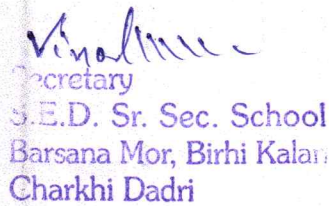 Secretary
S.E.D. Sr. Sec. School
Barsana Mor, Birhi Kalan
Charkhi Dadri